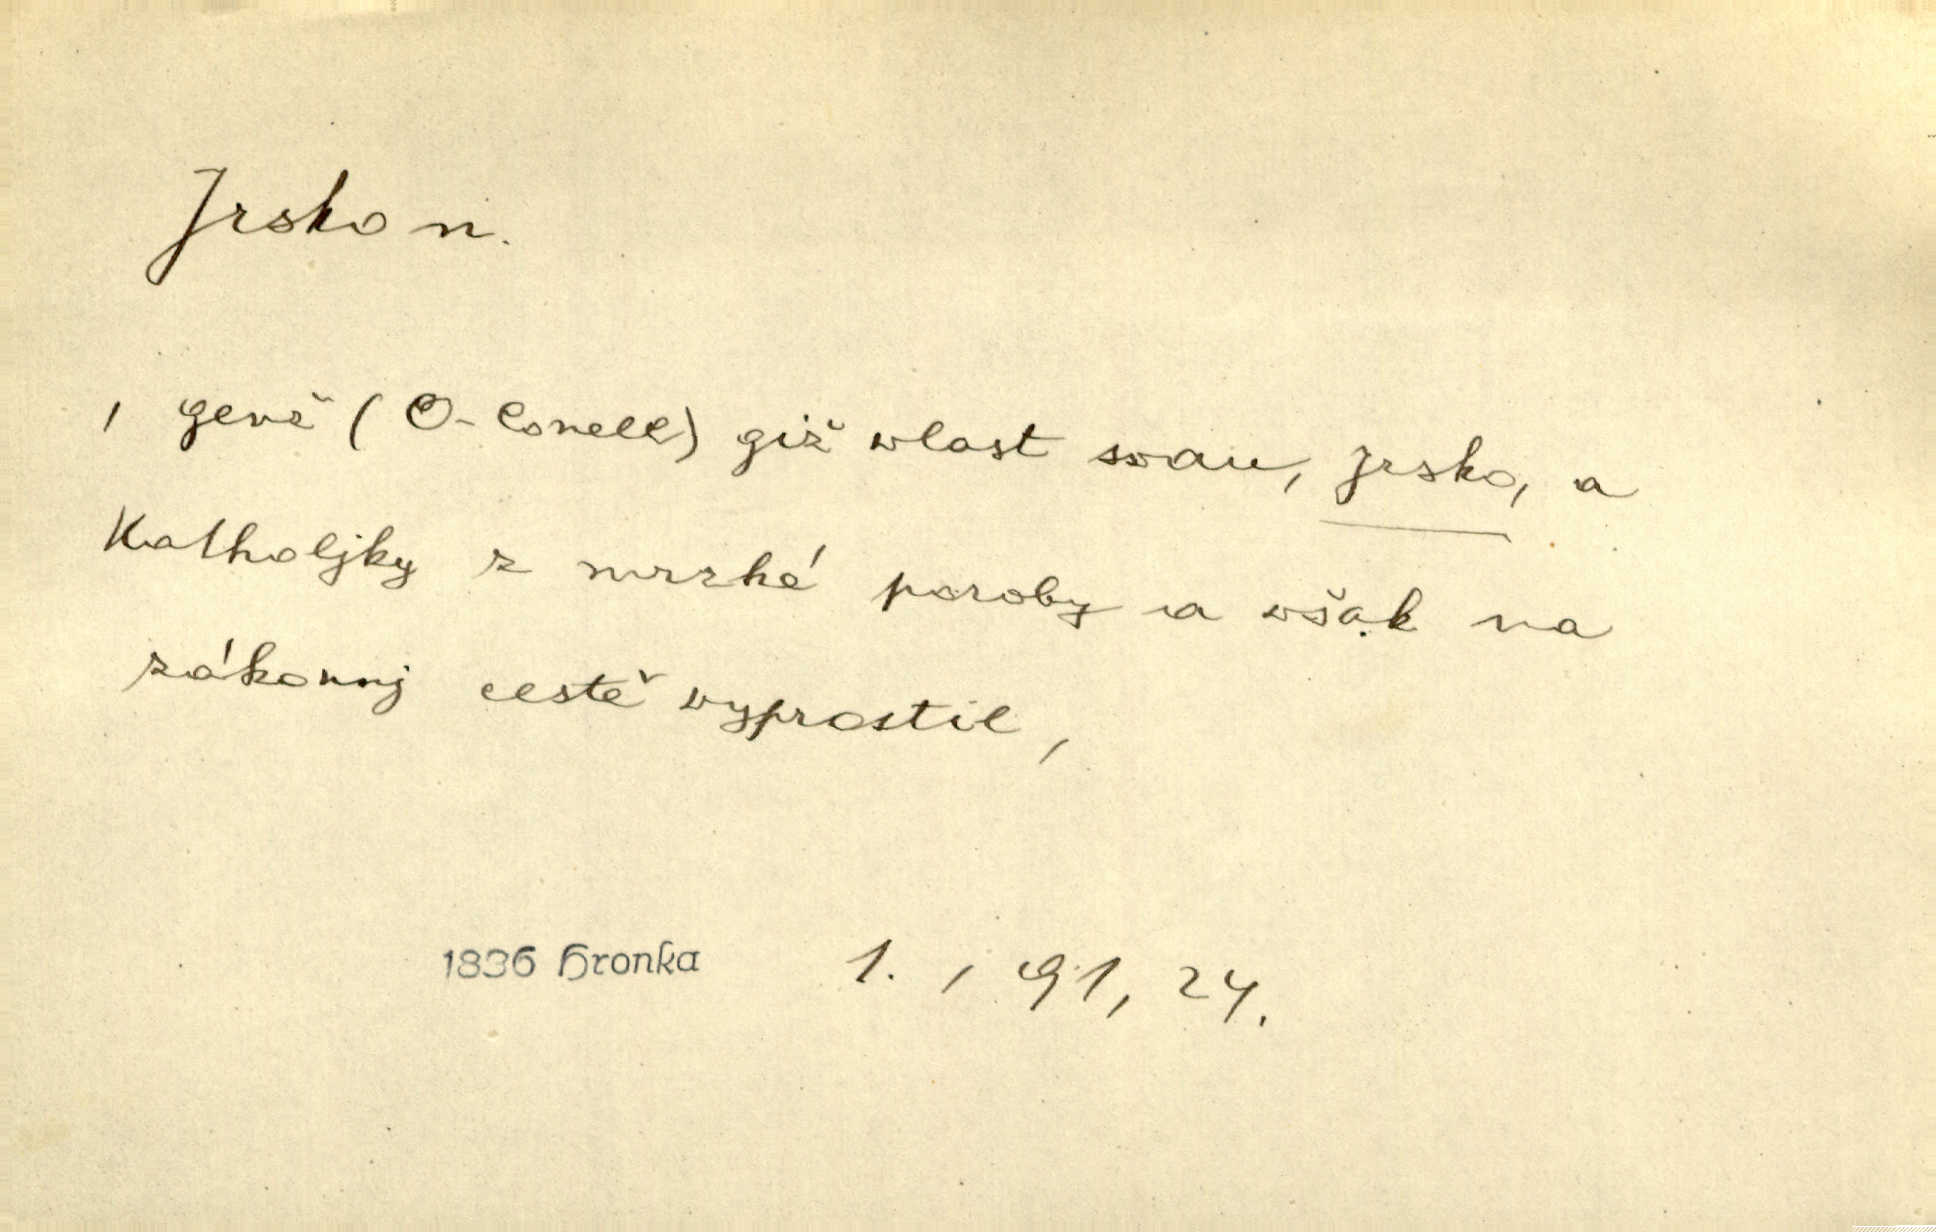 Jrsko n.
, genž (O-Conell) giž wlast swau, Jrsko, a
Katholjky z mrzké poroby a však na
zákonnj cestě vyprostil,
1836 Hronka 1. , 91, 24.